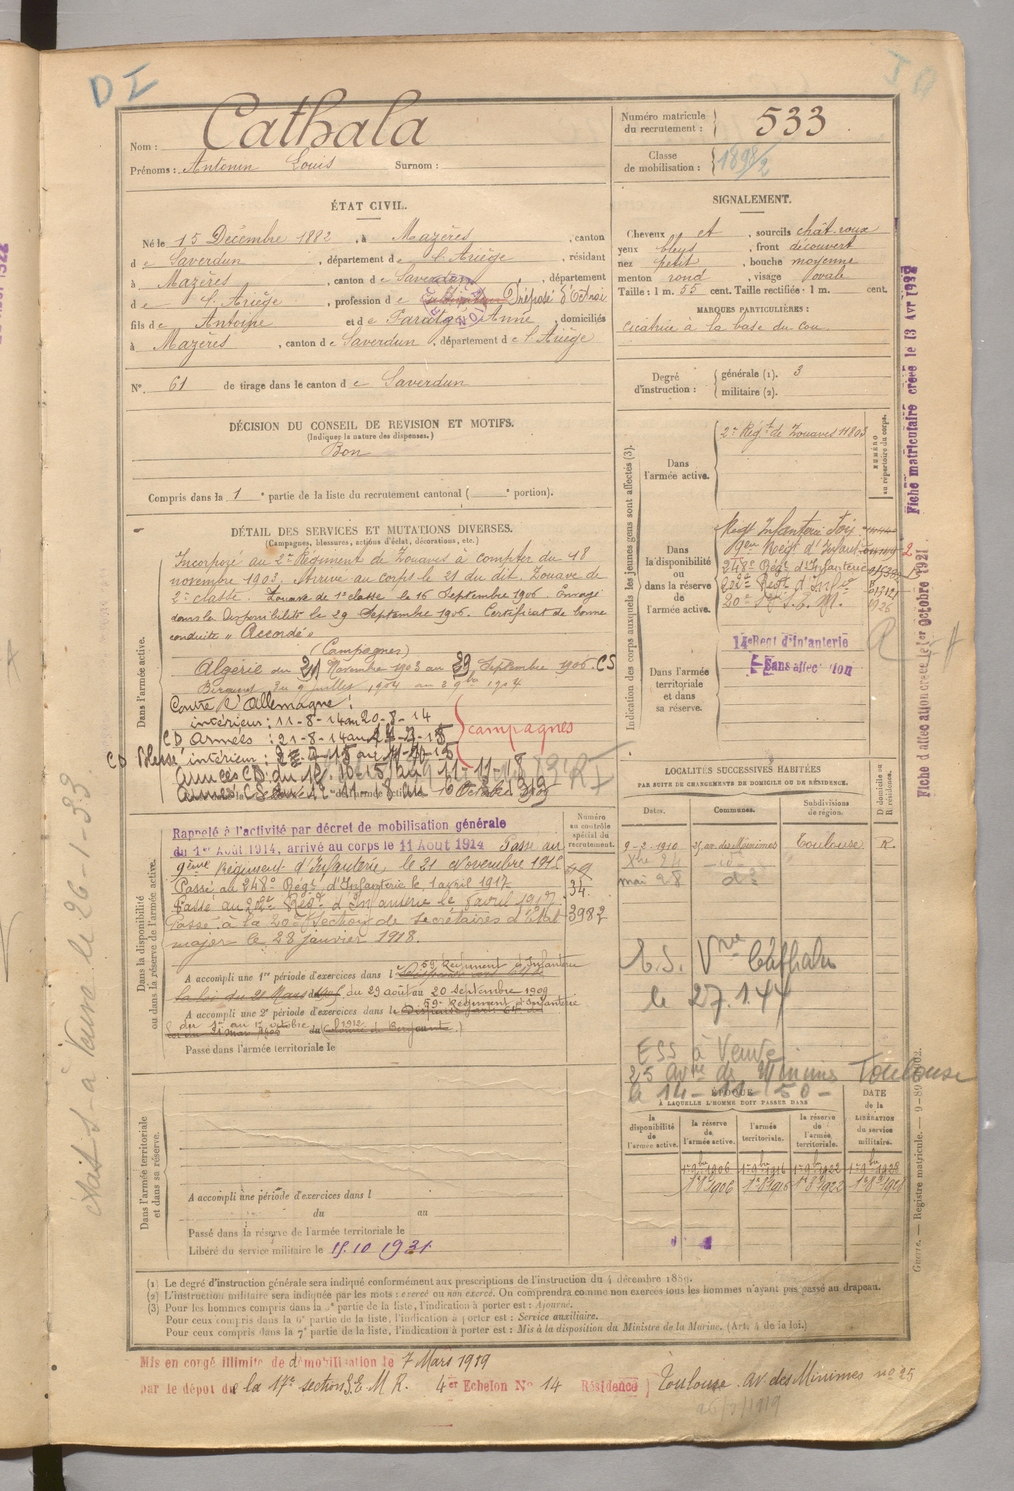 DI
Nom : Cathala
Prénoms : Antonin Louis Surnom :
Numéro matricule du recrutement : 533
Classe de mobilisation : 1898/2
ÉTAT CIVIL.
Né le 15 Décembre 1882, à Mazères, canton
de Saverdun, département de l'Ariège, résidant
à Mazères, canton de Saverdun, département
de l'Ariège, profession de Préposé d'Octroi
fils de Antoine et de Anne, domiciliés
à Mazères, canton de Saverdun, département de l'Ariège
N° 61 de tirage dans le canton de Saverdun
SIGNALEMENT.
Cheveux et sourcils chât. roux
yeux bleus, front découvert
nez petit, bouche moyenne
menton rond, visage ovale
Taille : 1 m. 55 cent. Taille rectifiée : 1 m. cent.
MARQUES PARTICULIÈRES :
cicatrice à la base du cou
Degré d'instruction : générale (1). 3
militaire (2).
DÉCISION DU CONSEIL DE REVISION ET MOTIFS.
(Indiquer la nature des dispenses.)
Bon
Compris dans la 1e partie de la liste du recrutement cantonal ( e portion).
DÉTAIL DES SERVICES ET MUTATIONS DIVERSES.
(Campagnes, blessures, actions d'éclat, décorations, etc.)
Dans l'armée active.
Incorporé au 2e Régiment de Zouaves à compter du 18
novembre 1903, arrivé au corps le 21 du dit. Zouave de
2e classe. Zouave de 1ère classe le 16 Septembre 1906. Envoyé
dans la disponibilité le 29 Septembre 1906. Certificat de bonne
conduite « Accordé »
(Campagnes)
Algérie du 21 Novembre 1903 au 29 Septembre 1906 CS
Contre l'Allemagne :
intérieur : 11-8-14 au 20-8-14
CD Armées : 21-8-14 au
campagnes
CD Blessé intérieur :
Armées CD du 12-10-15 au 11-11-18
Dans la disponibilité ou dans la réserve de l'armée active.
Rappelé à l'activité par décret de mobilisation générale
du 1er Août 1914, arrivé au corps le 11 Août 1914 Passé au
9ème Régiment d'Infanterie, le 21 Novembre 1915
Passé au 248e Régt d'Infanterie le 1 avril 1917
Passé au 222e Régt d'Infanterie le 8 avril 1917
Passé à la 20e Section de secrétaires d'état
major le 28 janvier 1918.
Numéro au contrôle spécial du recrutement.
49
34.
3982
A accompli une 1re période d'exercices dans le 59e Régiment d'Infanterie
du 29 août au 20 septembre 1909
A accompli une 2e période d'exercices dans le 59e Régiment d'Infanterie
du 1er au 17 octobre 1912
Passé dans l'armée territoriale le
Dans l'armée territoriale et dans sa réserve.
A accompli une période d'exercices dans l
du au
Passé dans la réserve de l'armée territoriale le
Libéré du service militaire le 15.10 1931
Indication des corps auxquels les jeunes gens sont affectés (3).
NUMÉRO au répertoire du corps.
Dans l'armée active.
2e Régt de Zouaves 11803
Dans la disponibilité ou dans la réserve de l'armée active.
Régt Infanterie Foix
9ème Régt d'Infanterie
248e Régt d'Infanterie
222e Régt d'Infie
20e S.E.M.
Dans l'armée territoriale et dans sa réserve.
14e Regt d'Infanterie
Sans affectation
LOCALITÉS SUCCESSIVES HABITÉES
PAR SUITE DE CHANGEMENTS DE DOMICILE OU DE RÉSIDENCE.
Dates. Communes. Subdivisions de région. D domicile ou R résidence.
9-2-1910 25 av. des Minimes Toulouse R.
Xbre 24 — d° —
mai 28 d°
E.S. Vve Cathala
le 27.1.44
ESS à Veuve
25 Avue de Minimes Toulouse
le 14-11-50-
ÉPOQUE
À LAQUELLE L'HOMME DOIT PASSER DANS
DATE de la LIBÉRATION du service militaire.
la disponibilité de l'armée active. la réserve de l'armée active. l'armée territoriale. la réserve de l'armée territoriale.
1er 9bre 1906 1er 9bre 1916 1er 9bre 1922 1er 9bre 1928
1er 8bre 1906 1er 8bre 1916 1er 8bre 1922 1er 8bre 1928
Fiche matriculaire créée le 13 Avr 1932
Fiche d'affectation créée le 1er Octobre 1921
était S à Toura le 26-1-33
(1) Le degré d'instruction générale sera indiqué conformément aux prescriptions de l'instruction du 4 décembre 1889.
(2) L'instruction militaire sera indiquée par les mots : exercé ou non exercé. On comprendra comme non exercés tous les hommes n'ayant pas passé au drapeau.
(3) Pour les hommes compris dans la 5e partie de la liste, l'indication à porter est : Ajourné.
Pour ceux compris dans la 6e partie de la liste, l'indication à porter est : Service auxiliaire.
Pour ceux compris dans la 7e partie de la liste, l'indication à porter est : Mis à la disposition du Ministre de la Marine. (Art. 4 de la loi.)
Guerre. — Registre matricule. —
Mis en congé illimité de démobilisation le 7 Mars 1919
par le dépôt de la 17e section S.E.M.R. 4er Echelon N° 14 Résidence Toulouse av. des Minimes n° 25